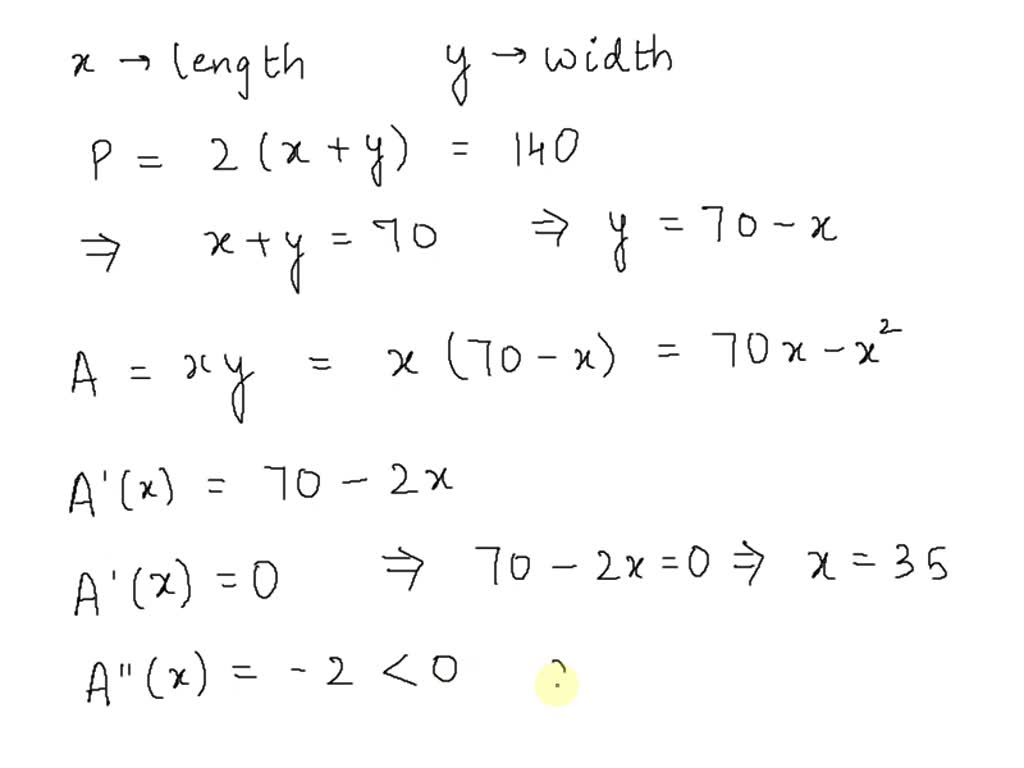 x → length y → width
P = 2 (x + y) = 140
⇒ x + y = 70 ⇒ y = 70 - x
A = xy = x (70 - x) = 70x - x²
A'(x) = 70 - 2x
A'(x) = 0 ⇒ 70 - 2x = 0 ⇒ x = 35
A''(x) = - 2 < 0